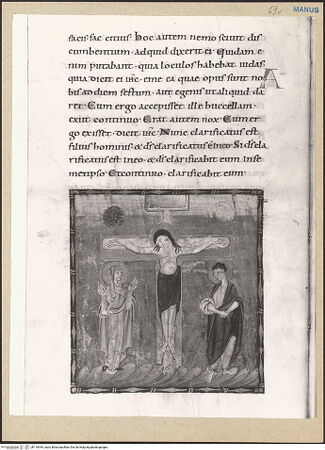 69v MANUS
facis fac citius Hoc autem nemo sciuit dis
cumbentium . ad quid dixerit ei. Quidam e
nim putabant . quia loculos habebat iudas
quia dicit ei ihc. eme ea quae opus sunt no
bis ad diem festum . Aut egenis ut aliquid da
ret Cum ergo accepisset ille buccellam .
exiit continuo Erat autem nox Cum er
go exisset . dicit ihc. Nunc clarificatus est
filius hominis & ds clarificatus e in eo Si ds cla
rificatus est in eo . & ds clarificabit eum in se
metipso Et continuo . clarificabit eum
A